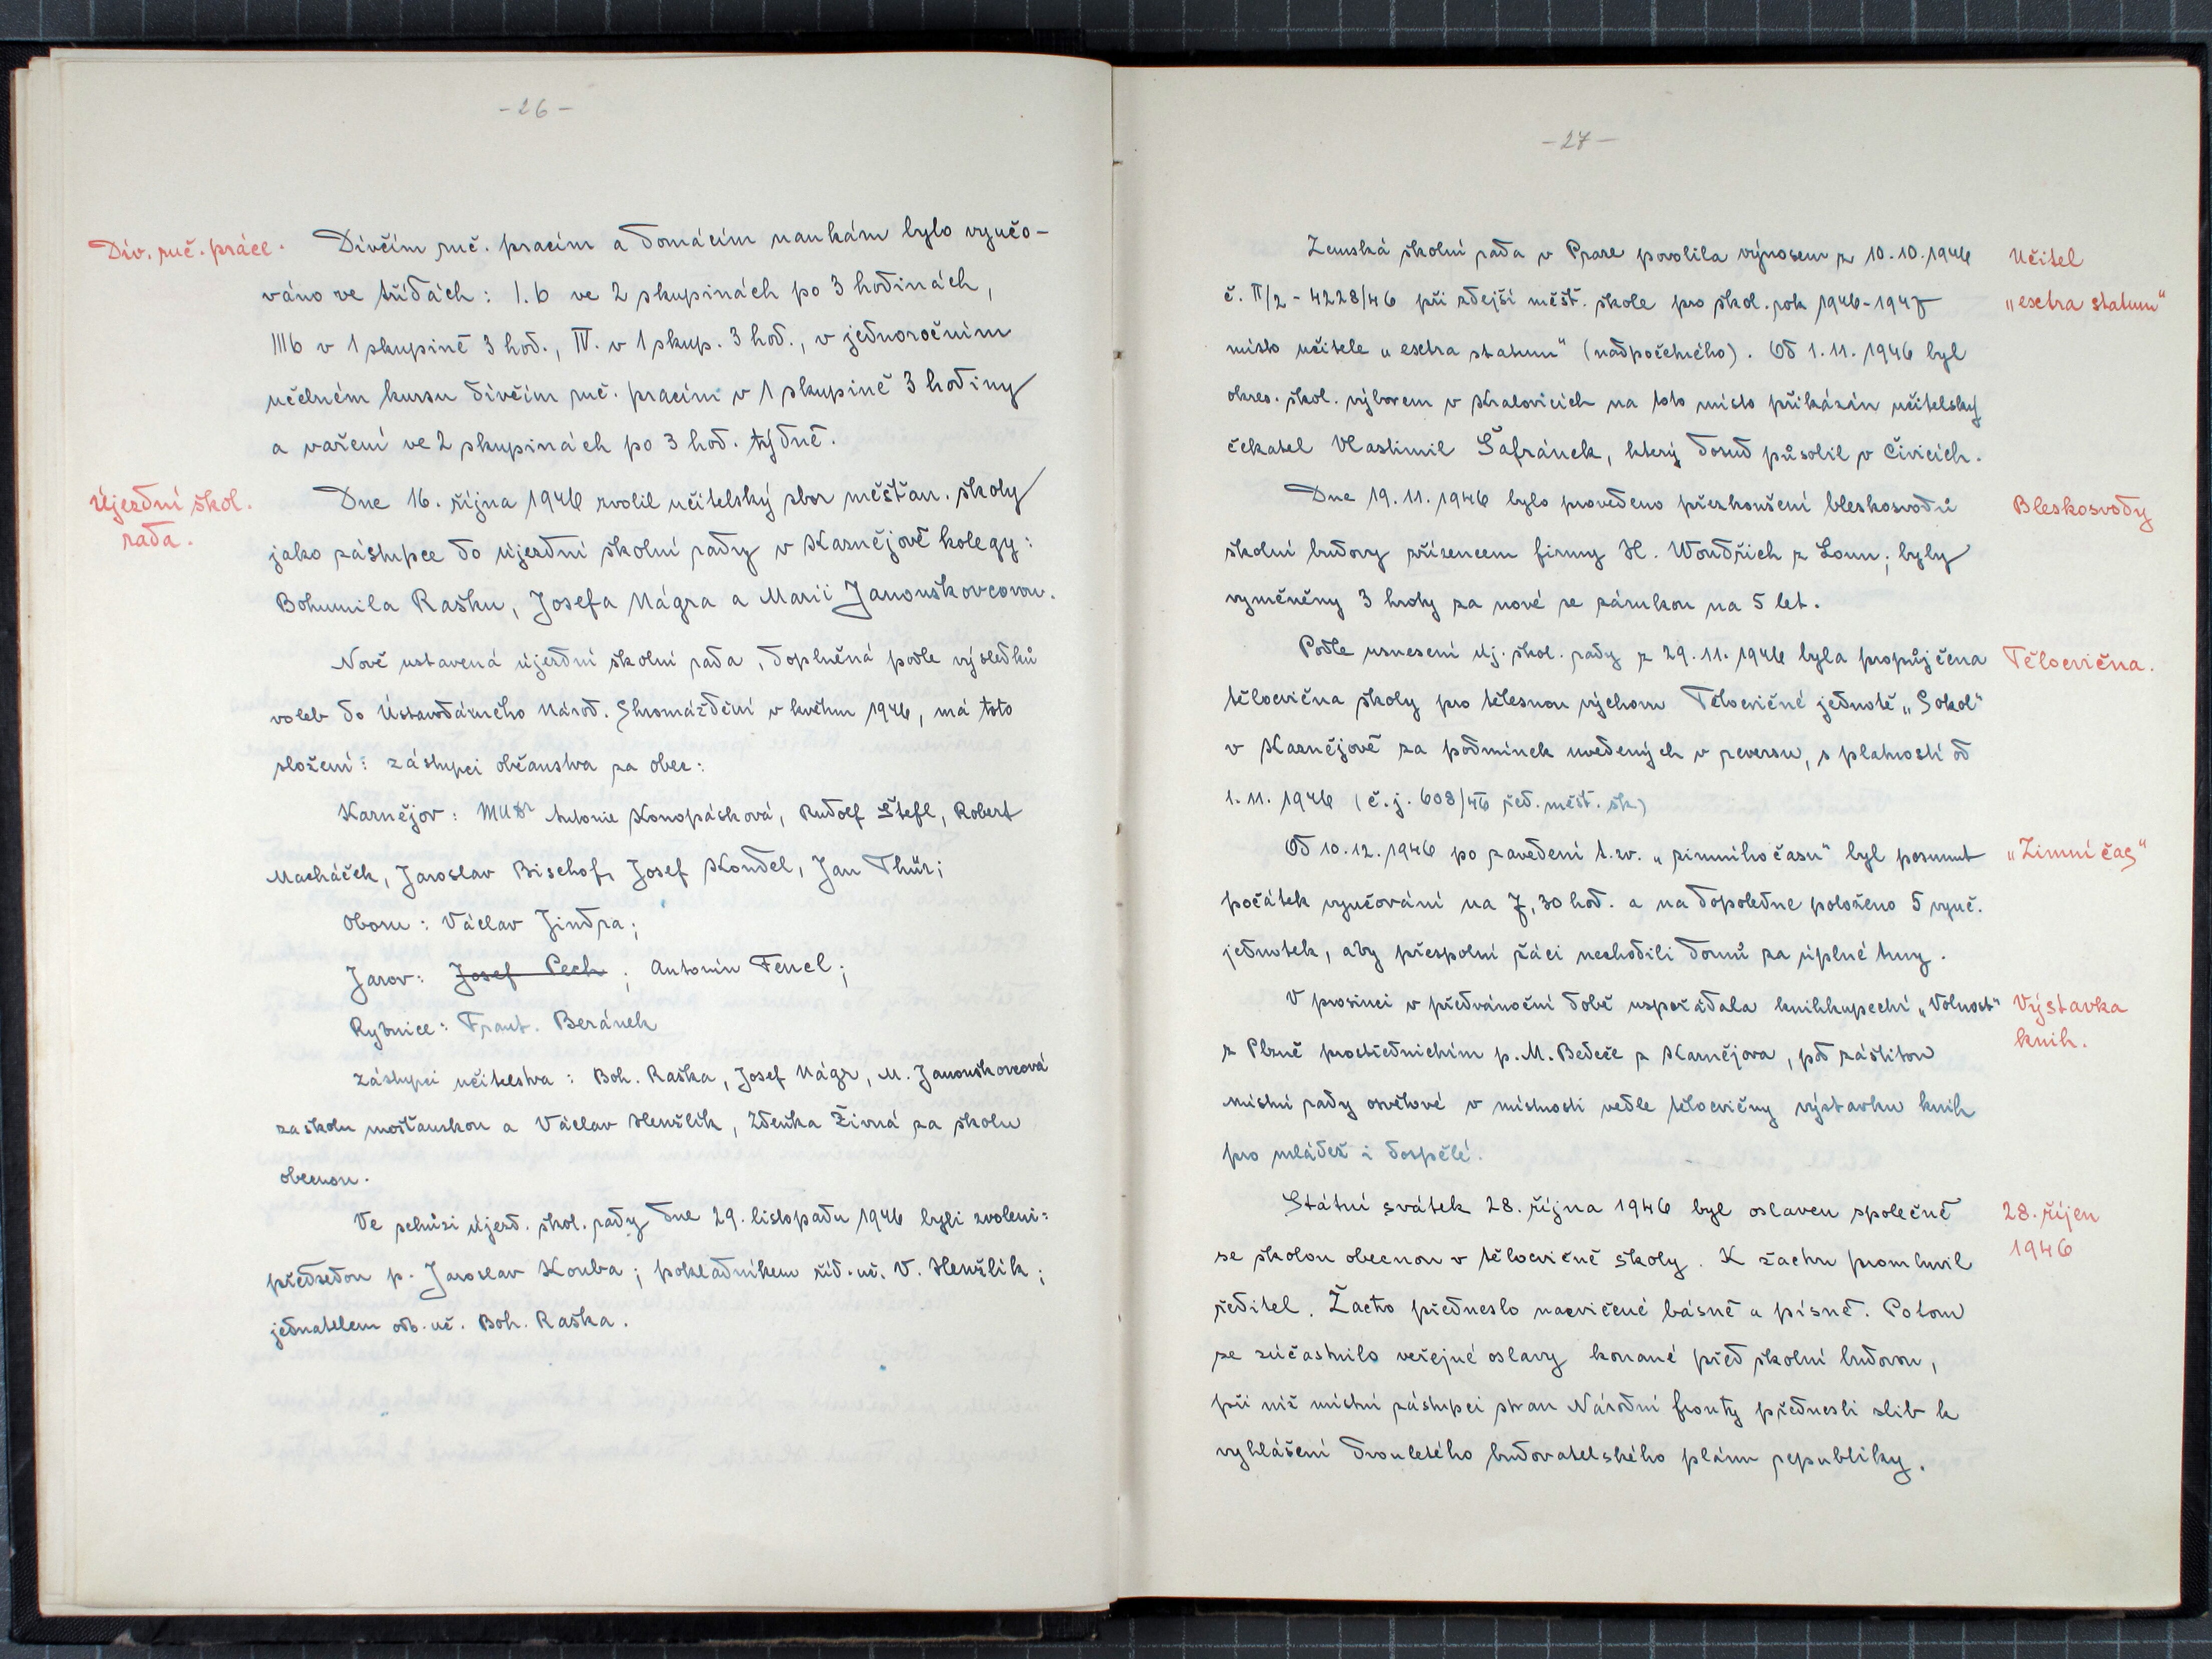 -26-
Dív. ruč. práce.
Dívčím ruč. pracím a domácím naukám bylo vyučo-
váno ve třídách: I.b ve 2 skupinách po 3 hodinách,
IIIb v 1 skupině 3 hod., IV. v 1 skup. 3 hod., v jednoročním
učebném kursu dívčím ruč. pracím v 1 skupině 3 hodiny
a vaření ve 2 skupinách po 3 hod. týdně.
Újezdní škol.
rada.
Dne 16. října 1946 zvolil učitelský sbor měšťan. školy
jako zástupce do újezdní školní rady v Kaznějově kolegy:
Bohumila Rašku, Josefa Nágra a Marii Janouškovcovou.
Nově ustavená újezdní školní rada, doplněná podle výsledků
voleb do Ústavodárného Národ. Shromáždění v květnu 1946, má toto
složení: zástupci občanstva za obec:
Kaznějov: MUDr Antonie Konopásková, Rudolf Štefl, Robert
Macháček, Jaroslav Bischof, Josef Kondel, Jan Thür;
Oboru: Václav Jindra;
Jarov: Josef Pech; Antonín Fencl;
Rybnice: Frant. Beránek
zástupci učitelstva: Boh. Raška, Josef Nágr, M. Janouškovcová
za školu mošťanskou a Václav Henžlík, Zdeňka Živná za školu
obecnou.
Ve schůzi újezd. škol. rady dne 29. listopadu 1946 byli zvoleni:
předsedou p. Jaroslav Kouba; pokladníkem říd. uč. V. Henžlík;
jednatelem odb. uč. Boh. Raška.
-27-
Zemská školní rada v Praze povolila výnosem z 10.10.1946
č. II/2-4228/46 při zdejší měšť. škole pro škol. rok 1946-1947
místo učitele „esctra statum" (nadpočetného). Od 1.11.1946 byl
okres. škol. výborem v Kralovicích na toto místo přikázán učitelský
čekatel Vlastimil Šafránek, který dosud působil v Čivicích.
Učitel
„esctra statum"
Dne 19.11.1946 bylo provedeno přezkoušení bleskosvodů
školní budovy zřízencem firmy H. Wondřich z Loun; byly
vyměněny 3 hroty za nové se zárukou na 5 let.
Bleskosvody
Podle usnesení új. škol. rady z 29.11.1946 byla propůjčena
tělocvična školy pro tělesnou výchovu Tělocvičné jednotě „Sokol"
v Kaznějově za podmínek uvedených v reversu, s platností od
1.11.1946 (č.j. 608/46 řed. měšť. šk)
Tělocvična.
Od 10.12.1946 po zavedení t.zv. „zimního času" byl posunut
počátek vyučování na 7,30 hod. a na dopoledne položeno 5 vyuč.
jednotek, aby přespolní žáci nechodili domů za úplné tmy.
„Zimní čas"
V prosinci v předvánoční době uspořádala knihkupectví „Volnost"
z Plzně prostřednictvím p. M. Bedeče z Kaznějova, pod záštitou
místní rady osvětové v místnosti vedle tělocvičny výstavku knih
pro mládež i dospělé.
Výstavka
knih.
Státní svátek 28. října 1946 byl oslaven společně
se školou obecnou v tělocvičně školy. K žactvu promluvil
ředitel. Žactvo předneslo nacvičené básně a písně. Potom
se zúčastnilo veřejné oslavy konané před školní budovou,
při níž místní zástupci stran Národní fronty přednesli slib k
vyhlášení dvouletého budovatelského plánu republiky.
28. říjen
1946